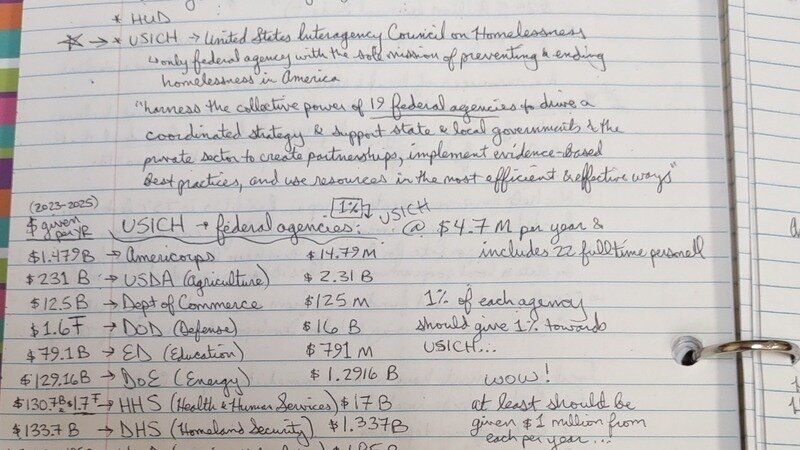 * HUD
* → * USICH → United States Interagency Council on Homelessness
↳ only federal agency with the sole mission of preventing & ending
homelessness in America
"harness the collective power of 19 federal agencies to drive a
coordinated strategy & support state & local governments & the
private sector to create partnerships, implement evidence-based
best practices, and use resources in the most efficient & effective ways"
(2023-2025)
$ given per YR
USICH → federal agencies:
1% ↴ USICH
@ $4.7 M per year &
includes 22 fulltime personell
$1.479B → Americorps $14.79M
$231 B → USDA (Agriculture) $2.31 B
$12.5B → Dept of Commerce $125 M
$1.6T → DoD (Defense) $16 B
$79.1B → ED (Education) $791 M
$129.16B → DoE (Energy) $1.2916 B
$130.7B & $1.7T → HHS (Health & Human Services) $17 B
$133.7 B → DHS (Homeland Security) $1.337B
1% of each agency
should give 1% towards
USICH...
WOW!
at least should be
given $1 million from
each per year...